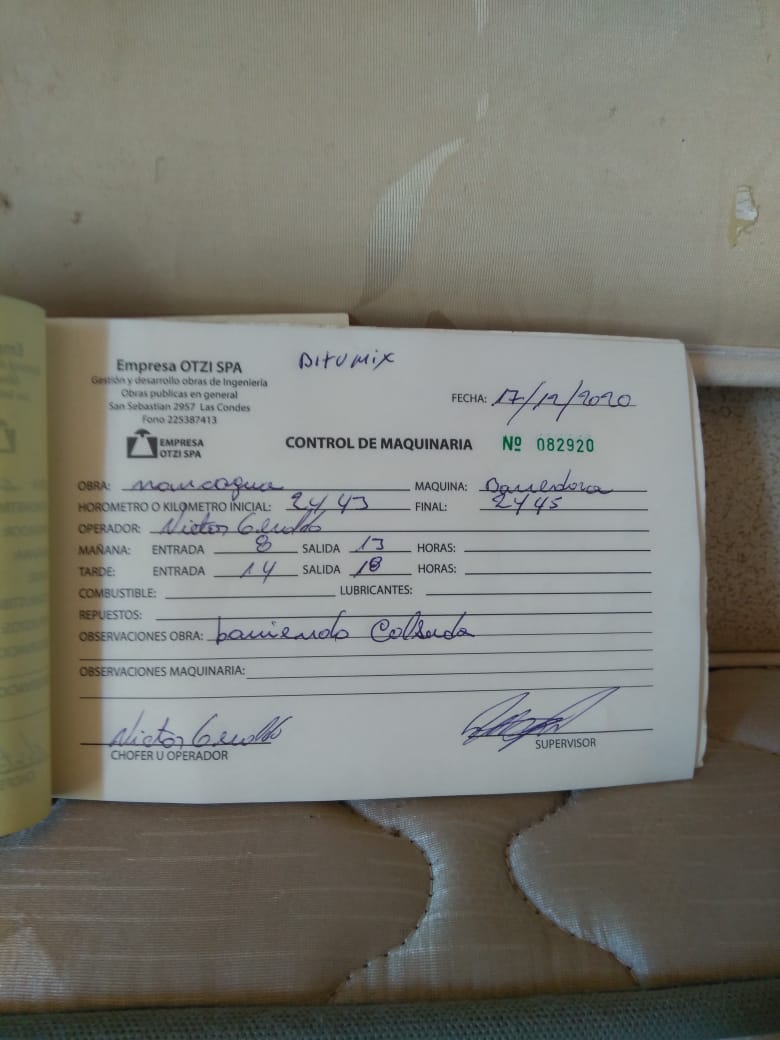 Empresa OTZI SPA
Gestión y desarrollo obras de Ingeniería
Obras publicas en general
San Sebastian 2957 Las Condes
Fono 225387413
BITUMIX
FECHA: 17/12/2020
EMPRESA
OTZI SPA
CONTROL DE MAQUINARIA Nº 082920
OBRA: nancagua MAQUINA: Barredora
HOROMETRO O KILOMETRO INICIAL: 2443 FINAL: 2445
OPERADOR: Victor
MAÑANA: ENTRADA 8 SALIDA 13 HORAS:
TARDE: ENTRADA 14 SALIDA 18 HORAS:
COMBUSTIBLE: LUBRICANTES:
REPUESTOS:
OBSERVACIONES OBRA: barriendo Calsada
OBSERVACIONES MAQUINARIA:
Victor
CHOFER U OPERADOR
SUPERVISOR